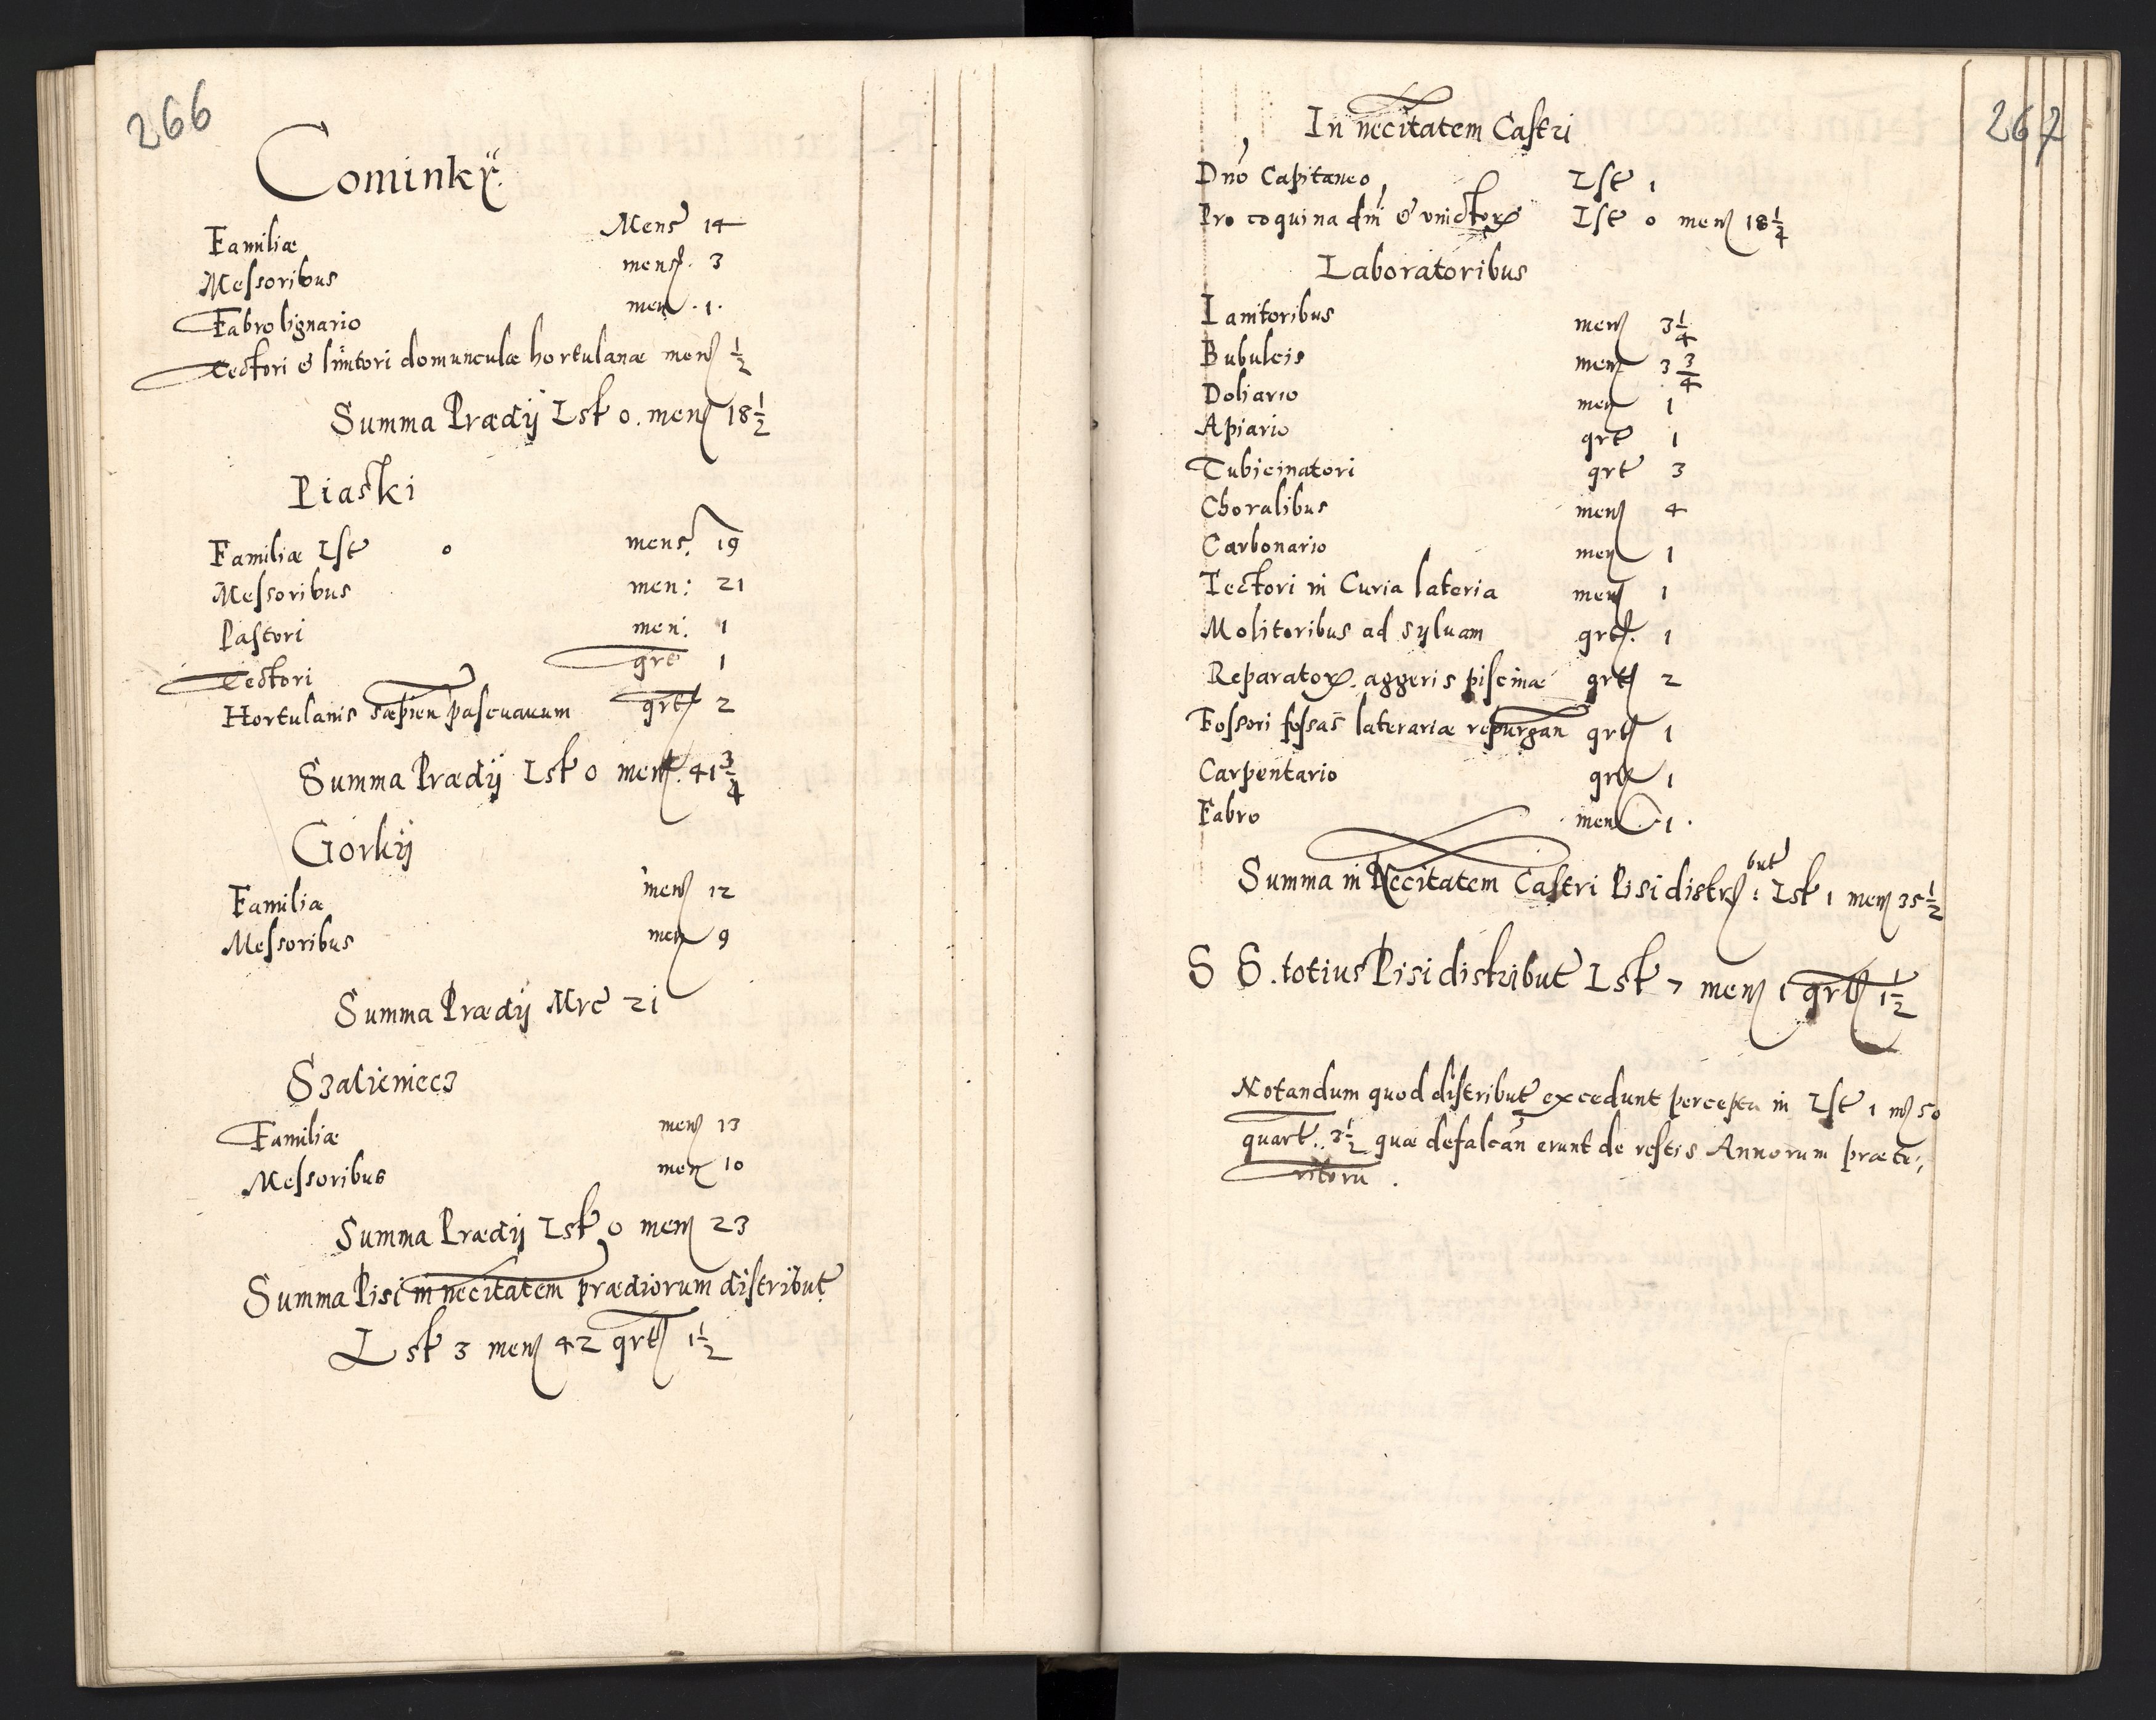 266
Cominkÿ.
Familiæ Mens 14
Messoribus mens. 3
Fabro lignario men .1.
Tectori & limtori domunculæ hortulanæ mens ½
Summa Prædÿ Lst 0. mens 18½
Piaski
Familiæ Lst 0 mens. 19
Messoribus men: 21
Pastori men: 1
Tectori grt 1
Hortulanis sæpien pascuauum grt 2
Summa Prædÿ Lst 0 mens. 41¾
Gorkÿ
Familiæ mens 12
Messoribus men 9
Summa Prædÿ Mrc 21
Szalieniecz
Familiæ mens 13
Messoribus men 10
Summa Prædÿ Lst 0 mens 23
Summa Pisi in necitatem prædiorum distribut
Lst 3 mens 42 qrt 1½
267
In necitatem Castri
Dno Capitaneo Lst 1
Pro coquina dni & vnictor Lst 0 mens 18¼
Laboratoribus
Ianitoribus mens 3¼
Bubulcis mens 3¾
Doliario men 1
Apiario qrt 1
Tubicinatori qrt 3
Choralibus mens 4
Carbonario men 1
Tectori in Curia lateria mens 1
Molitoribus ad syluam qrt. 1
Reparator. aggeris piscinæ qrt 2
Fossori fossas laterariæ repurgan qrt 1
Carpentario qrt 1
Fabro men .1.
Summa in Necitatem Castri Pisi distri but : Lst 1 mens 35½
S S. totius Pisi distribut Lst 7 mens 1 qrt 1½
Notandum quod distribut excedunt percepta in Lst 1 ms 50
quart. 3½ quæ defalcan erunt de restis Annorum præte,,
ritoru .